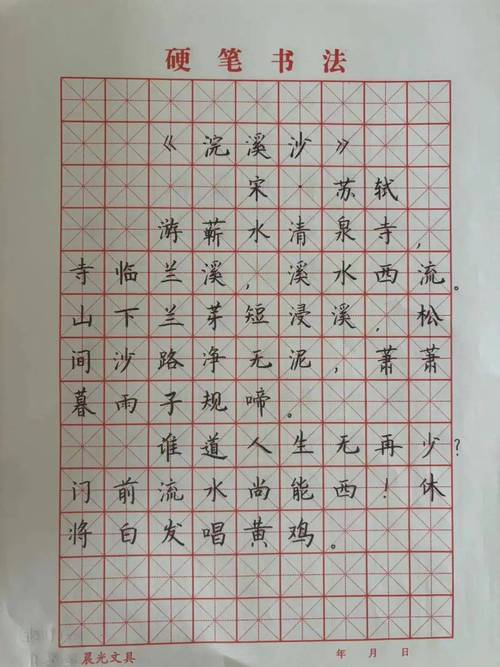 硬笔书法
《浣溪沙》
宋·苏轼
游蕲水清泉寺，
寺临兰溪，溪水西流。
山下兰芽短浸溪，松
间沙路净无泥，萧萧
暮雨子规啼。
谁道人生无再少？
门前流水尚能西！休
将白发唱黄鸡。
晨光文具
年 月 日